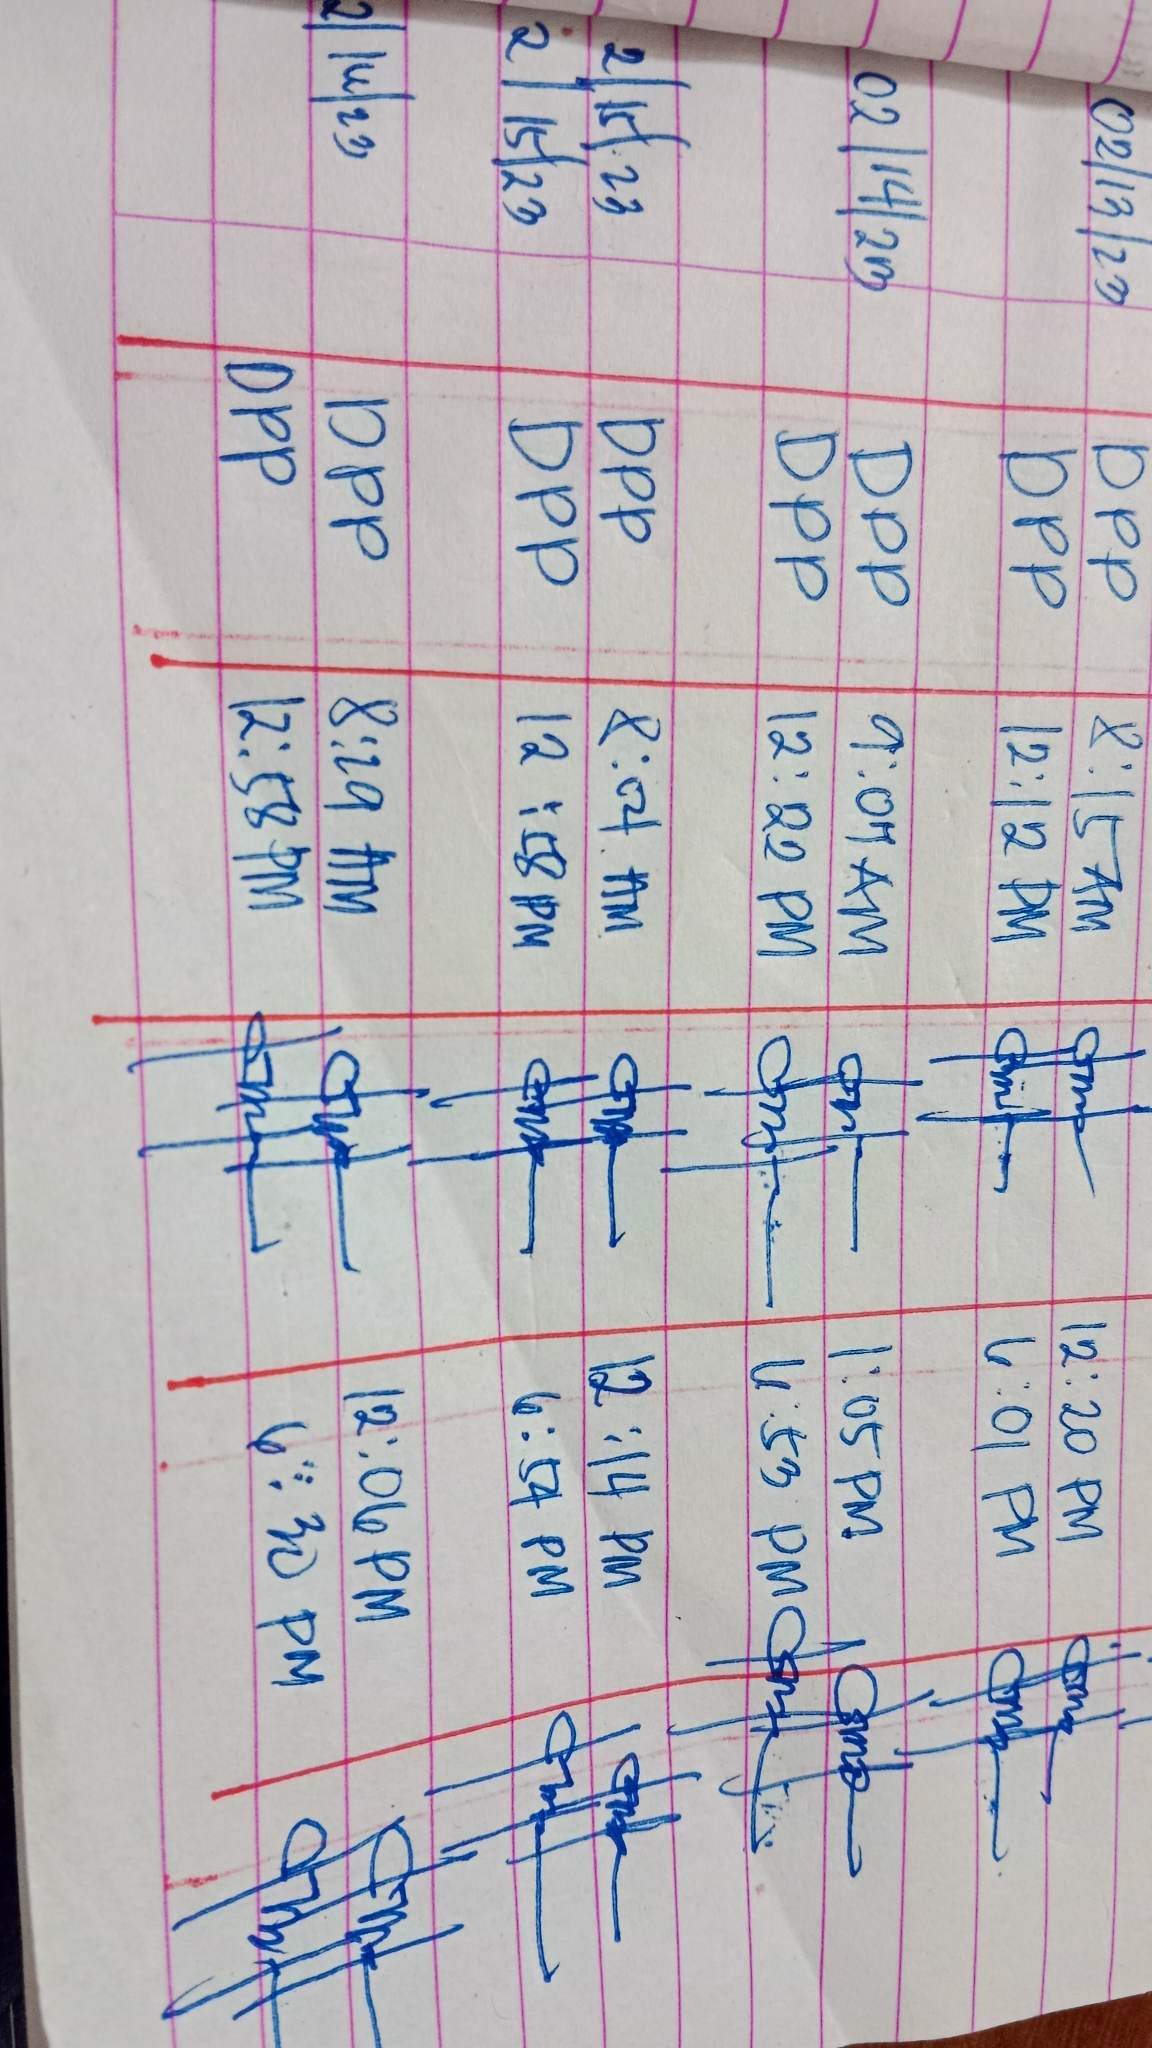 02/13/23 DPP 8:15 AM 12:20 PM
DPP 12:12 PM 6:01 PM
02/14/23 DPP 9:07 AM 1:05 PM
DPP 12:22 PM 6:53 PM
2/15/23 DPP 8:04 AM 12:14 PM
2/15/23 DPP 12:58 PM 6:54 PM
2/16/23 DPP 8:29 AM 12:06 PM
DPP 12:58 PM 6:30 PM